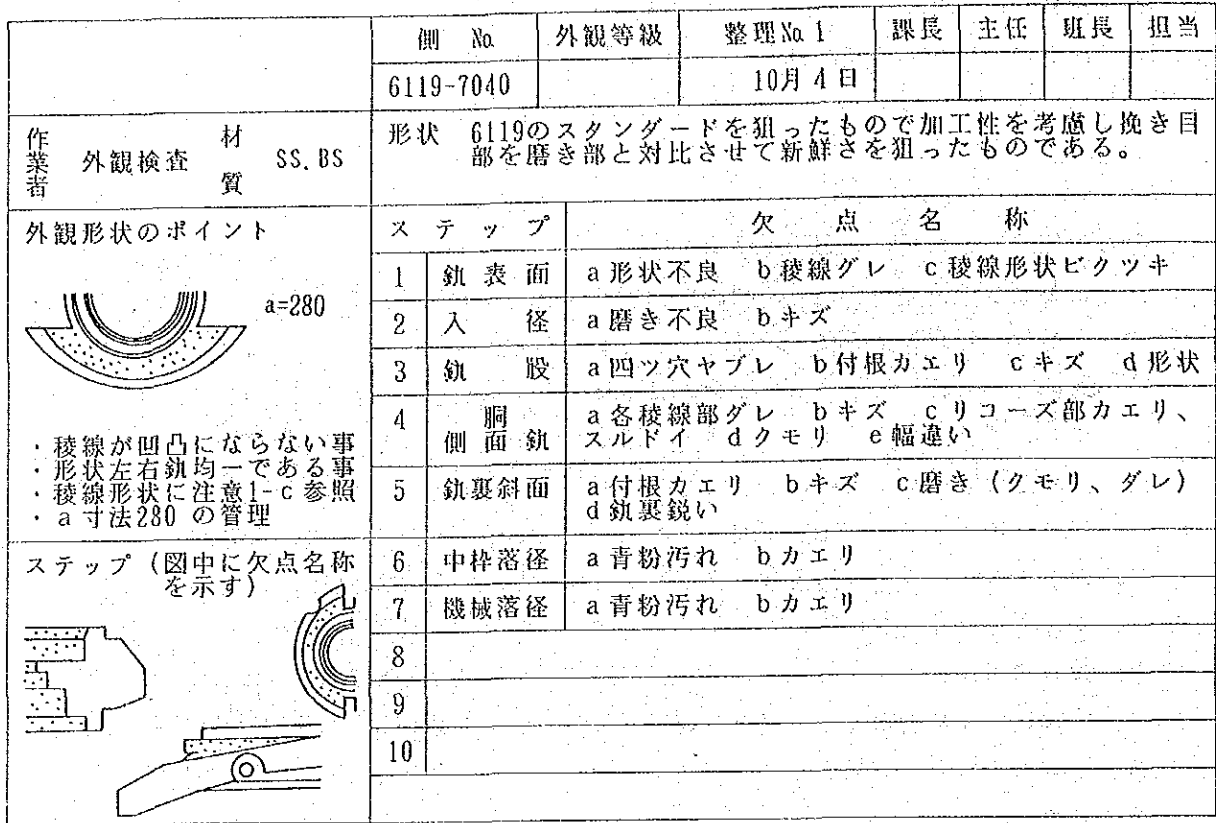 側 No. 外観等級 整理No.1 課長 主任 班長 担当
6119-7040 10月 4日
作業者 外観検査 材質 SS.BS
形状 6119のスタンダードを狙ったもので加工性を考慮し挽き目
部を磨き部と対比させて新鮮さを狙ったものである。
外観形状のポイント
a=280
・稜線が凹凸にならない事
・形状左右釻均一である事
・稜線形状に注意1-c参照
・a寸法280 の管理
ステップ (図中に欠点名称
を示す)
ステップ 欠点名称
1 釻表面 a形状不良 b稜線グレ c稜線形状ビクツキ
2 入径 a磨き不良 bキズ
3 釻股 a四ツ穴ヤブレ b付根カエリ cキズ d形状
4 胴側面釻 a各稜線部ダレ bキズ cリコーズ部カエリ、
スルドイ dクモリ e幅違い
5 釻裏斜面 a付根カエリ bキズ c磨き (クモリ、ダレ)
d釻裏鋭い
6 中枠落径 a青粉汚れ bカエリ
7 機械落径 a青粉汚れ bカエリ
8
9
10